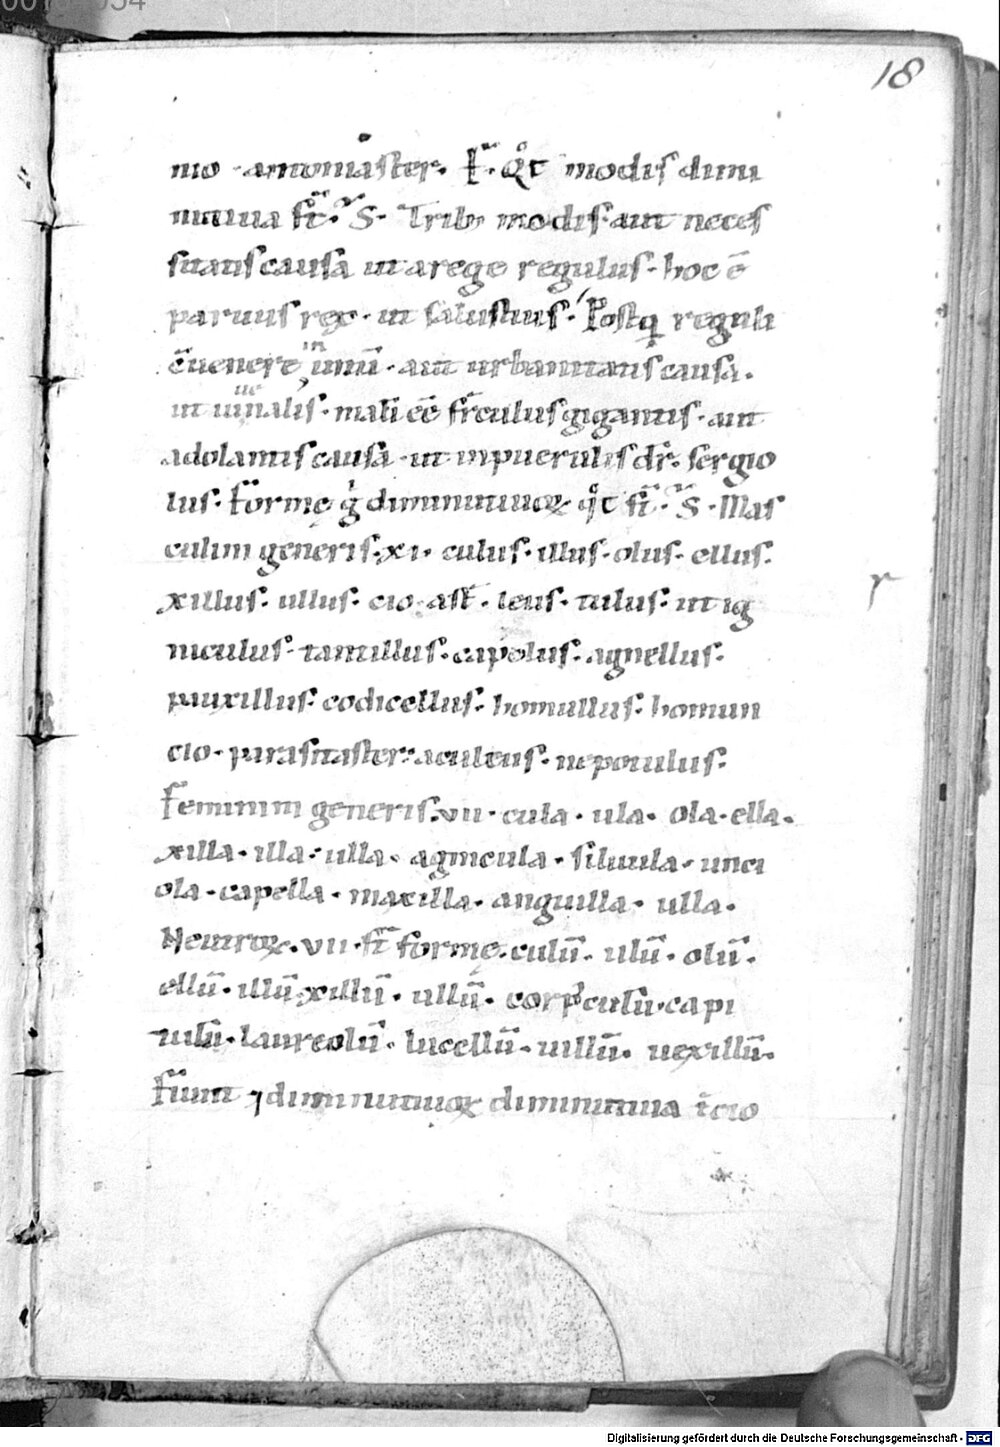 18
nio · antoniaster · F̄ · Qͦt modis dimi
nutiua st̄ · S̄ · Trib; modis · aut neces
sitatis causa ut a rege regulus · hoc ē
paruus rex · ut salustius · Postq̄ reguli
c̄uenerē in unū · aut urbanitatis causa ·
mali eē frͣculus gigantis · aut
adolantis causa · ut in puerulis dr̄ · sergio
lus · forme g̊ diminutiuoꝝ qͦt st̄ · S̄ · Mas
culini generis · xi · culus · illus · olus · ellus ·
xillus · ullus · cio · ast̄ · leus · tulus · ut ig
niculus · tantillus · capolus · agnellus ·
pauxillus · codicellus · homullus · homun
cio · parasitaster · aculeus · nepotulus ·
Feminini generis · vii · cula · ula · ola · ella ·
xilla · illa · ulla · agnicula · siluula · unci
ola · capella · maxilla · anguilla · ulla ·
Neutroꝝ · vii · st̄ forme · culū · ulū · olū ·
ellū · illū · xillū · ullū · corpͦculū · capi
tulū · laureolū · lucellū · uillū · uexillū ·
fiunt ⁊ diminutiuoꝝ diminutiua t̄cio
Digitalisierung gefördert durch die Deutsche Forschungsgemeinschaft - DFG